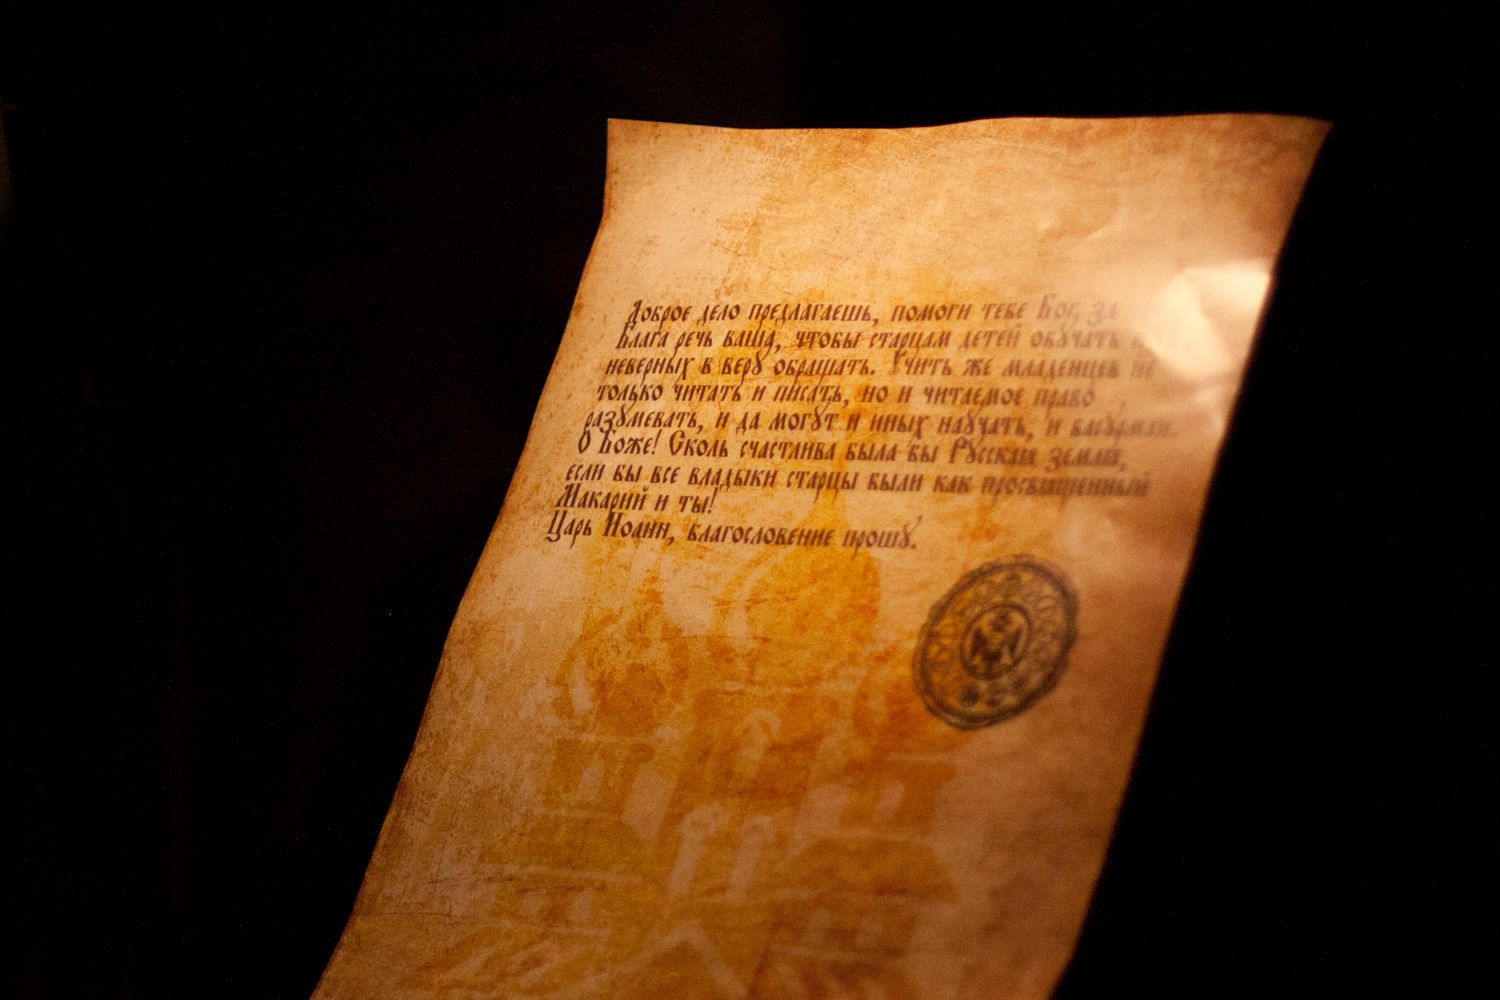 Доброе дело предлагаешь, помоги тебе Бог, за
Блага речь ваша, чтобы старцам детей обучать и
неверных в веру обращать. Учить же младенцев не
только читать и писать, но и читаемое право
разумевать, и да могут и иных научать, и басурман.
О Боже! Сколь счастлива была бы Русская земля,
если бы все владыки старцы были как просвященный
Макарий и ты!
Царь Иоанн, благословение прошу.